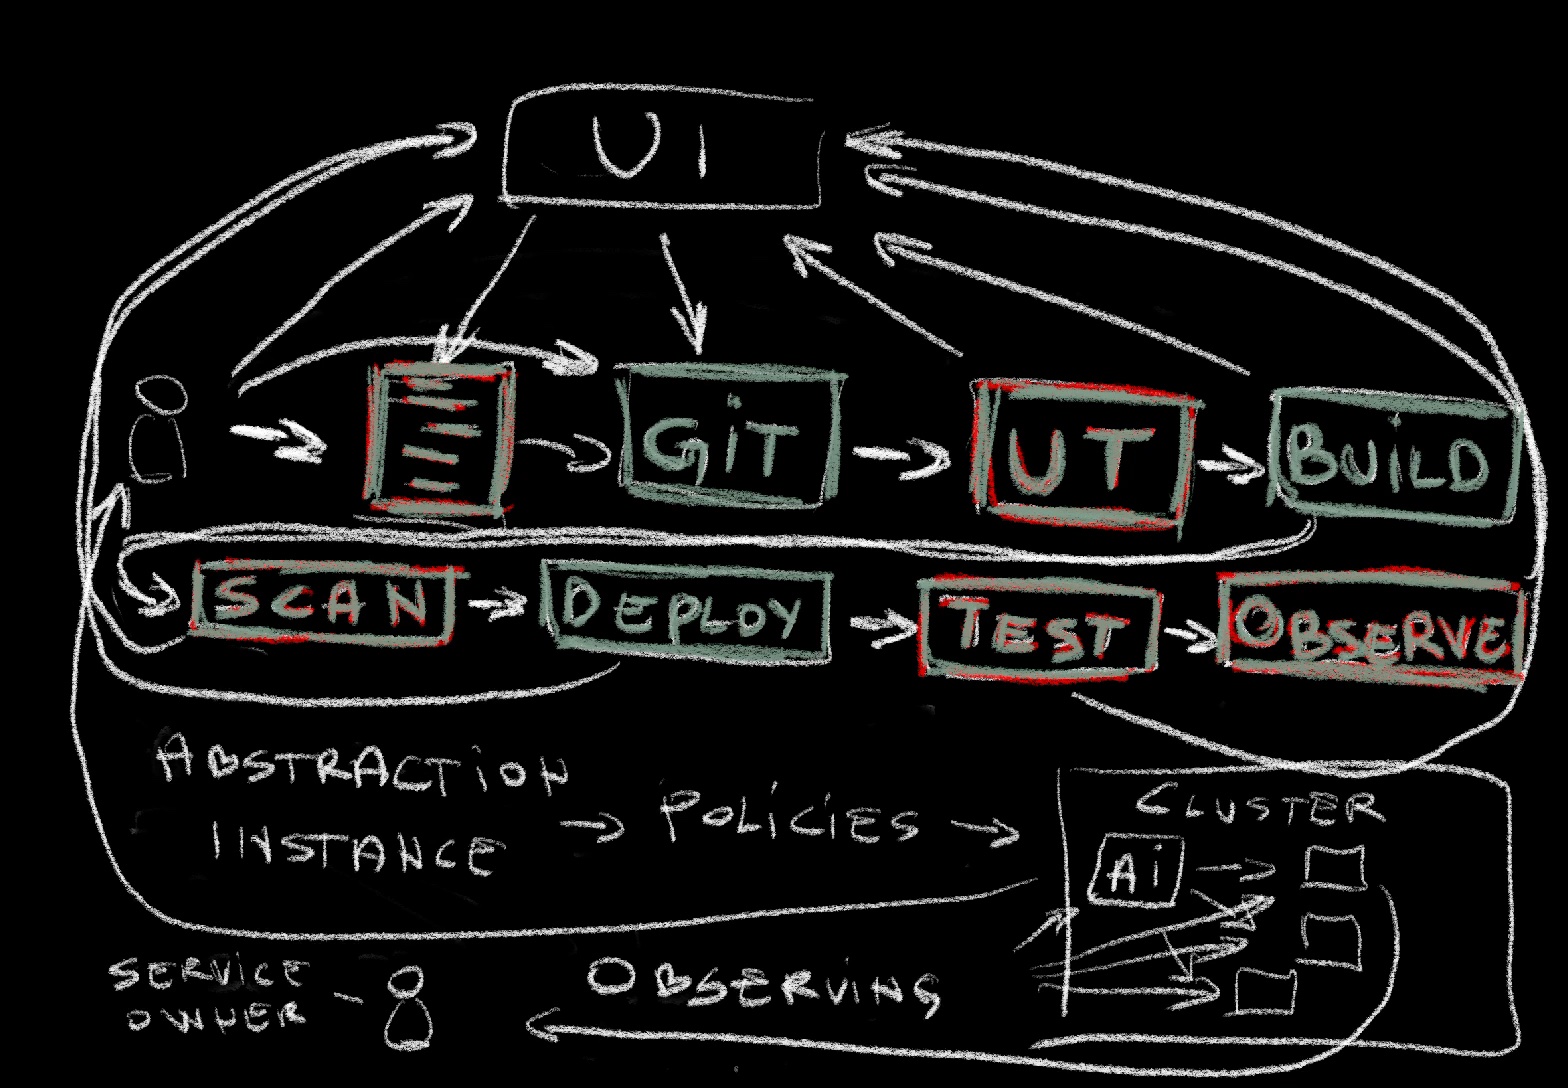 UI
GiT
UT
BUiLD
SCAN
DEPLOY
TEST
OBSERVE
ABSTRACTiON
INSTANCE
POLiCiES
CLUSTER
Ai
SERViCE
OWNER
OBSERViNG